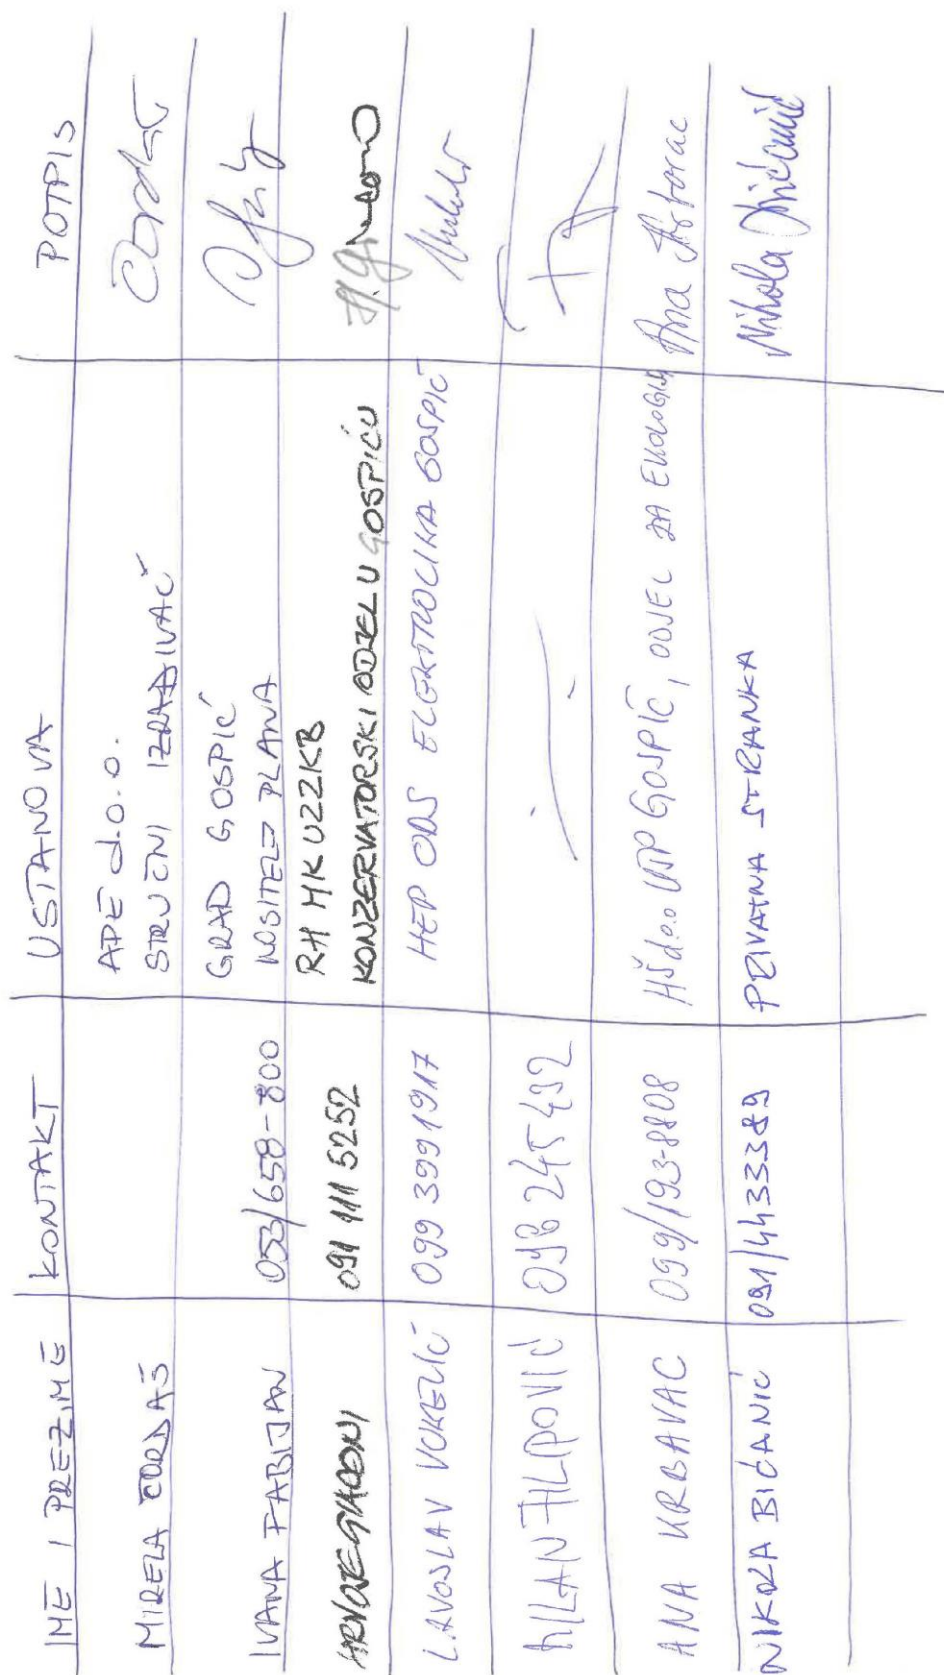 IME I PREZIME KONTAKT USTANOVA POTPIS
MIRELA ĆORDAŠ APE d.o.o.
STRUČNI IZRAĐIVAČ
IVANA FABIJAN 053/658-800 GRAD GOSPIĆ
NOSITELJ PLANA
HRVOJE GIACONI 091 111 5252 RH MK UZZKB
KONZERVATORSKI ODJEL U GOSPIĆU H. Giaconi
LAVOSLAV VUKELIĆ 099 399 1917 HEP ODS ELEKTROLIKA GOSPIĆ
MILAN FILIPOVIĆ 098 245 492
ANA KRBAVAC 099/193-8808 HŠ d.o.o UŠP GOSPIĆ, ODJEL ZA EKOLOGIJU Ana Krbavac
NIKOLA BIĆANIĆ 091/4433389 PRIVATNA STRANKA Nikola Bićanić